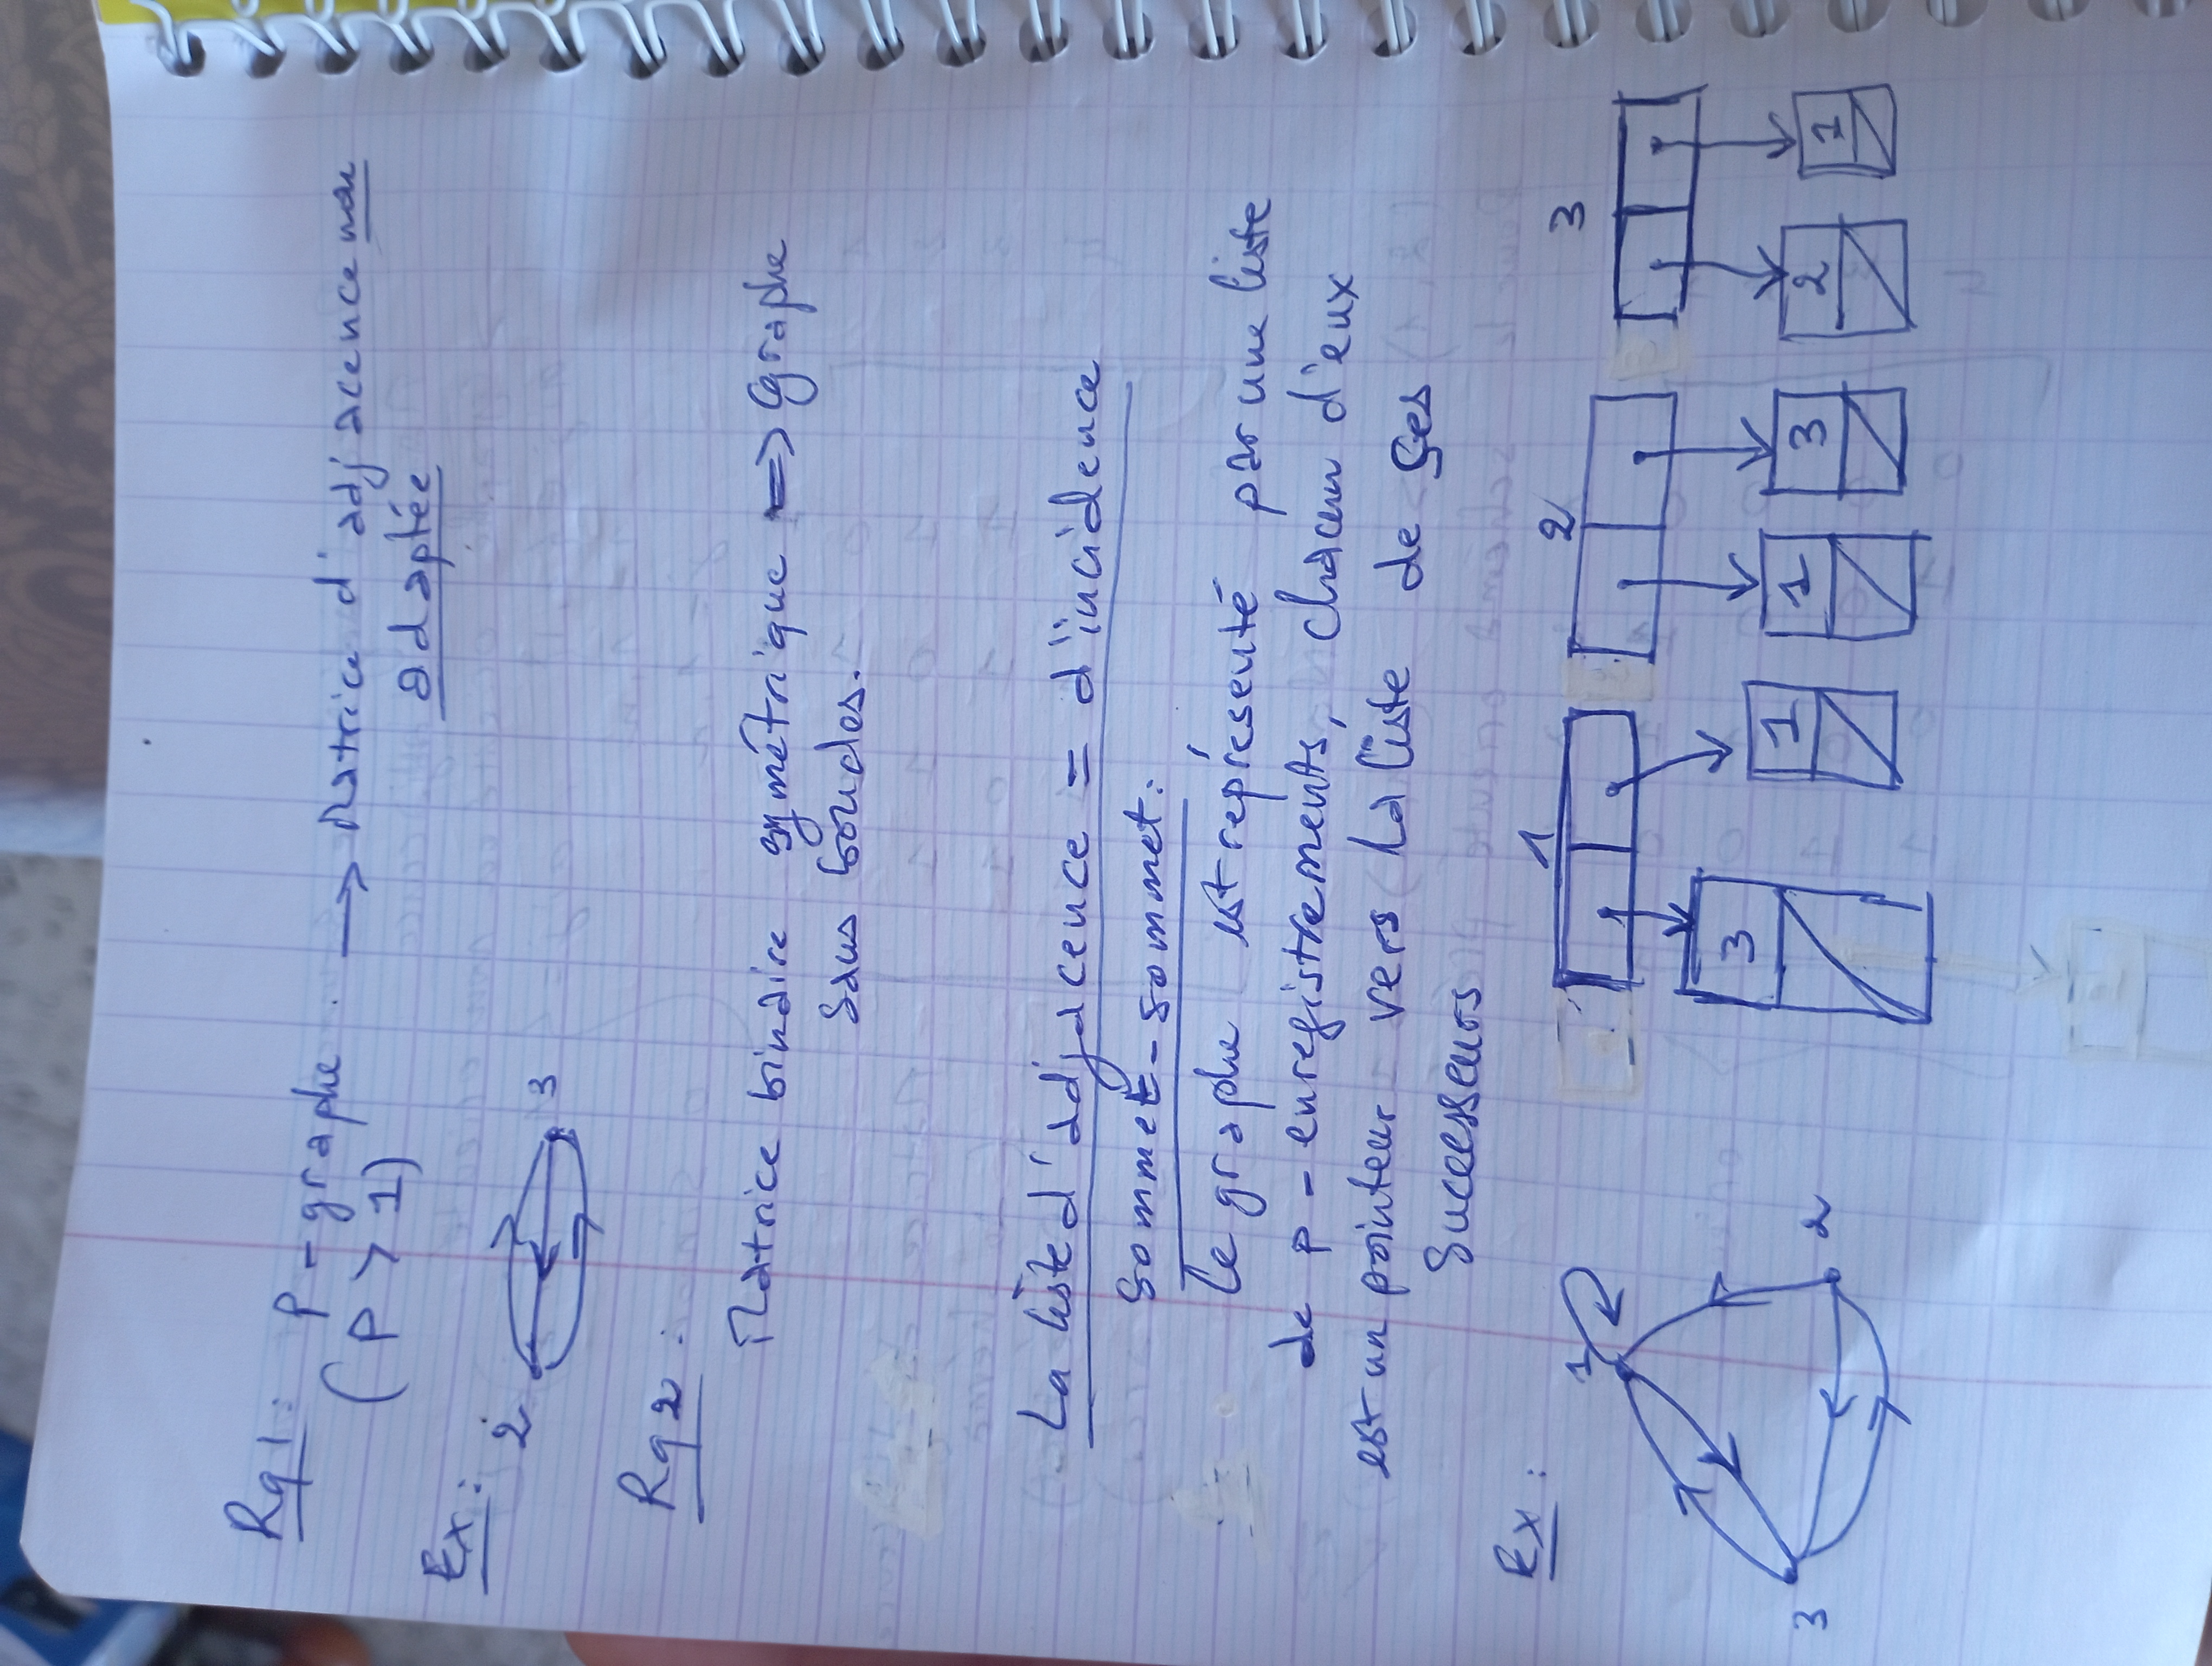 Rq1: p-graphe → Matrice d'adjacence non
(p > 1) adaptée
Ex: 2 3
Rq2:
Matrice binaire symétrique ⟹ Graphe
sans boucles.
La liste d'adjacence = d'incidence
sommet-sommet:
Le graphe est représenté par une liste
de p-enregistrements, chacun d'eux
est un pointeur vers la liste de ses
successeurs
Ex:
1 1 2 3
3 1 1 3 2 1
3 2